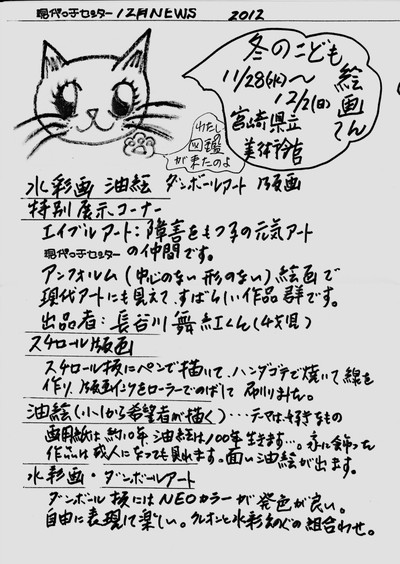 現代っ子センター 12月NEWS 2012
冬のこども
絵画てん
11/28(水)〜
12/2(日)
宮崎県立
美術館
わたしの
図鑑
が来たのよ
水彩画 油絵 ダンボールアート 版画
特別展示コーナー
エイブルアート:障害をもつ子の元気アート
現代っ子センターの仲間です。
アンフォルム(中心のない形のない)絵画で
現代アートにも見えて、すばらしい作品群です。
出品者:長谷川舞紅くん(4才児)
スチロール版画
スチロール板にペンで描いて、ハンダゴテで焼いて線を
作り、版画インクをローラーでのばして刷りました。
油絵(小1から希望者が描く)・・・テーマは好きなもの
画用紙は約10年 油絵は100年生きます…。家に飾った
作品は成人になっても見れます。面い油絵が出ます。
水彩画・ダンボールアート
ダンボール板にはNEOカラーが発色が良い。
自由に表現して楽しい。クレオンと水彩えのぐの組合わせ。